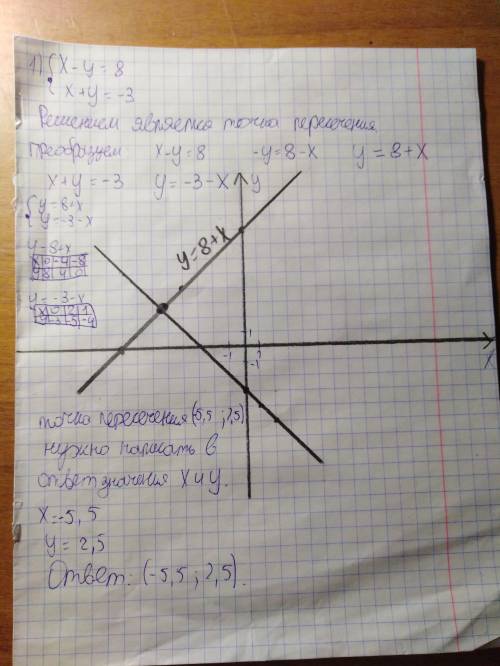 1) { x-y=8
x+y=-3
Решением является точка пересечения
преобразуем x-y=8 -y=8-x y=8+x
x+y=-3 y=-3-x y
{ y=8+x
y=-3-x
y=8+x
x 0 -4 -8
y 8 4 0
y=8+x
y=-3-x
x 0 2 1
y -3 -5 -4
1
-1 1
x
точка пересечения (-5,5 ; 2,5)
нужно написать в
ответ значения x и y.
x=-5,5
y=2,5
Ответ: (-5,5 ; 2,5).